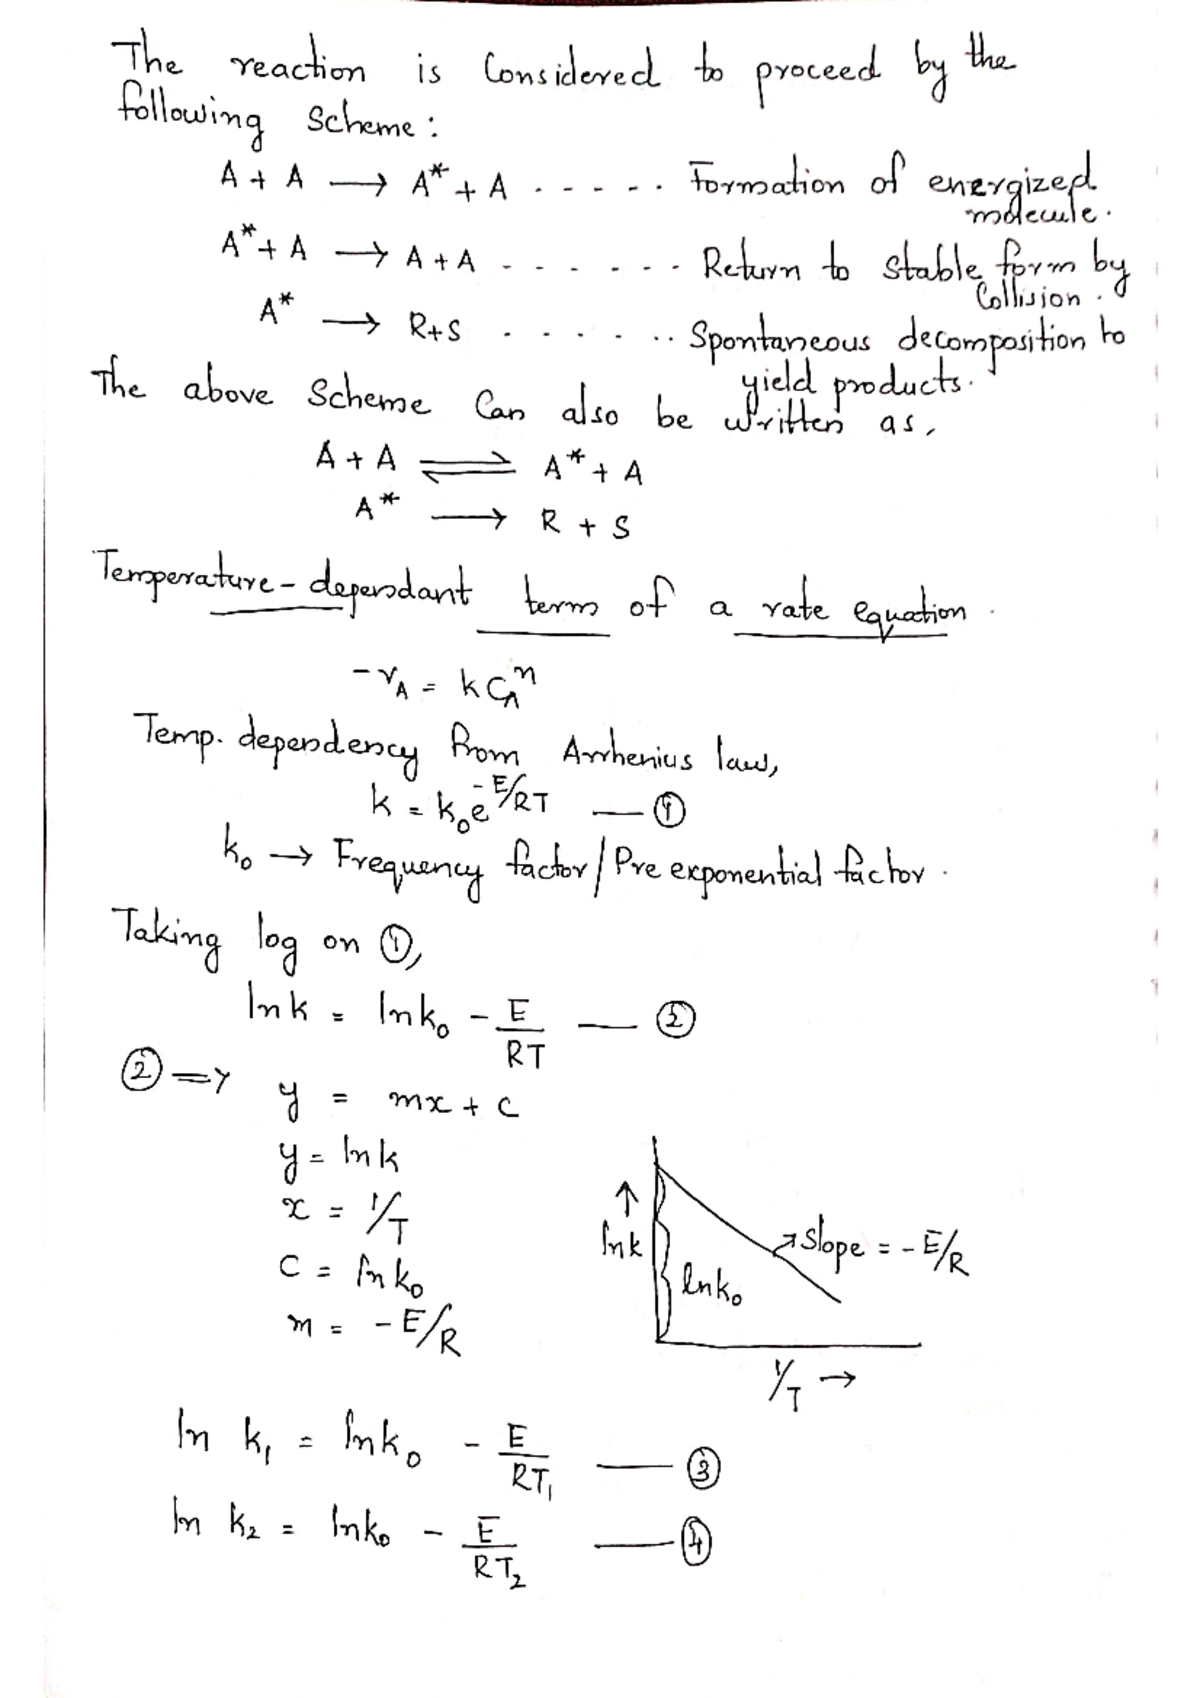 The reaction is Considered to proceed by the
following Scheme:
A + A → A* + A ...... Formation of energized
molecule.
A* + A → A + A ....... Return to stable form by
Collision.
A* → R+S ....... Spontaneous decomposition to
yield products.
The above Scheme Can also be written as,
A + A ⇌ A* + A
A* → R + S
Temperature-dependant term of a rate equation.
-rA = k CA^n
Temp. dependency from Arrhenius law,
k = k₀e^-E/RT — ①
k₀ → Frequency factor/Pre exponential factor.
Taking log on ①,
ln k = ln k₀ - E/RT — ②
② => y = mx + c
y = ln k
x = 1/T
c = ln k₀
m = -E/R
↑
ln k
ln k₀
slope = -E/R
1/T →
ln k₁ = ln k₀ - E/RT₁ — ③
ln k₂ = ln k₀ - E/RT₂ — ④